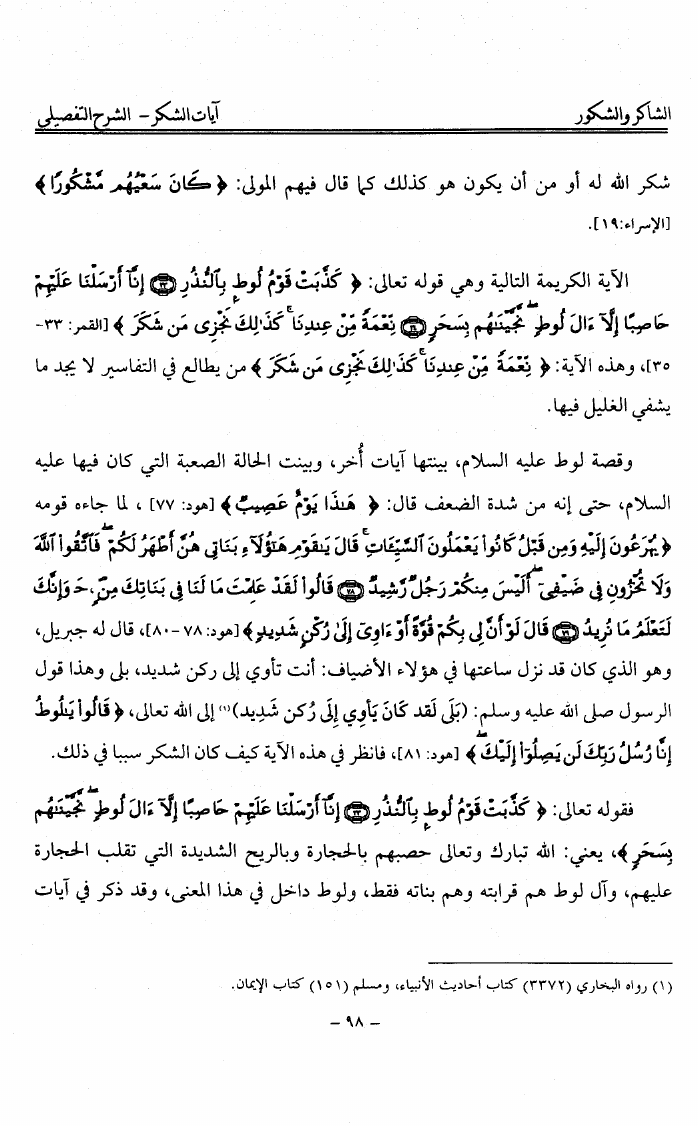 الشاكر والشكور
آيات الشكر – الشرح التفصيلي
شكر الله له أو من أن يكون هو كذلك كما قال فيهم المولى: ﴿ كَانَ سَعْيُهُم مَّشْكُورًا ﴾
[الإسراء:١٩].
الآية الكريمة التالية وهي قوله تعالى: ﴿ كَذَّبَتْ قَوْمُ لُوطٍ بِٱلنُّذُرِ ﴿٣٣﴾ إِنَّآ أَرْسَلْنَا عَلَيْهِمْ
حَاصِبًا إِلَّآ ءَالَ لُوطٍ ۖ نَّجَّيْنَٰهُم بِسَحَرٍ ﴿٣٤﴾ نِّعْمَةً مِّنْ عِندِنَا ۚ كَذَٰلِكَ نَجْزِى مَن شَكَرَ ﴾ [القمر: ٣٣-
٣٥]، وهذه الآية: ﴿ نِّعْمَةً مِّنْ عِندِنَا ۚ كَذَٰلِكَ نَجْزِى مَن شَكَرَ ﴾ من يطالع في التفاسير لا يجد ما
يشفي الغليل فيها.
وقصة لوط عليه السلام، بينتها آيات أُخر، وبينت الحالة الصعبة التي كان فيها عليه
السلام، حتى إنه من شدة الضعف قال: ﴿ هَٰذَا يَوْمٌ عَصِيبٌ ﴾ [هود: ٧٧] ، لما جاءه قومه
﴿ يُهْرَعُونَ إِلَيْهِ وَمِن قَبْلُ كَانُوا۟ يَعْمَلُونَ ٱلسَّيِّـَٔاتِ ۚ قَالَ يَٰقَوْمِ هَٰٓؤُلَآءِ بَنَاتِى هُنَّ أَطْهَرُ لَكُمْ ۖ فَٱتَّقُوا۟ ٱللَّهَ
وَلَا تُخْزُونِ فِى ضَيْفِىٓ ۖ أَلَيْسَ مِنكُمْ رَجُلٌ رَّشِيدٌ ﴿٧٨﴾ قَالُوا۟ لَقَدْ عَلِمْتَ مَا لَنَا فِى بَنَاتِكَ مِنْ حَقٍّ وَإِنَّكَ
لَتَعْلَمُ مَا نُرِيدُ ﴿٧٩﴾ قَالَ لَوْ أَنَّ لِى بِكُمْ قُوَّةً أَوْ ءَاوِىٓ إِلَىٰ رُكْنٍ شَدِيدٍ ﴾ [هود: ٧٨ -٨٠]، قال له جبريل،
وهو الذي كان قد نزل ساعتها في هؤلاء الأضياف: أنت تأوي إلى ركن شديد، بلى وهذا قول
الرسول صلى الله عليه وسلم: (بَلَى لَقد كَانَ يَأوِي إِلَى رُكن شَدِيد)(١) إلى الله تعالى، ﴿ قَالُوا۟ يَٰلُوطُ
إِنَّا رُسُلُ رَبِّكَ لَن يَصِلُوٓا۟ إِلَيْكَ ۖ ﴾ [هود: ٨١]، فانظر في هذه الآية كيف كان الشكر سببا في ذلك.
فقوله تعالى: ﴿ كَذَّبَتْ قَوْمُ لُوطٍ بِٱلنُّذُرِ ﴿٣٣﴾ إِنَّآ أَرْسَلْنَا عَلَيْهِمْ حَاصِبًا إِلَّآ ءَالَ لُوطٍ ۖ نَّجَّيْنَٰهُم
بِسَحَرٍ ﴾، يعني: الله تبارك وتعالى حصبهم بالحجارة وبالريح الشديدة التي تقلب الحجارة
عليهم، وآل لوط هم قرابته وهم بناته فقط، ولوط داخل في هذا المعنى، وقد ذكر في آيات
(١) رواه البخاري (٣٣٧٢) كتاب أحاديث الأنبياء، ومسلم (١٥١) كتاب الإيمان.
– ٩٨ –